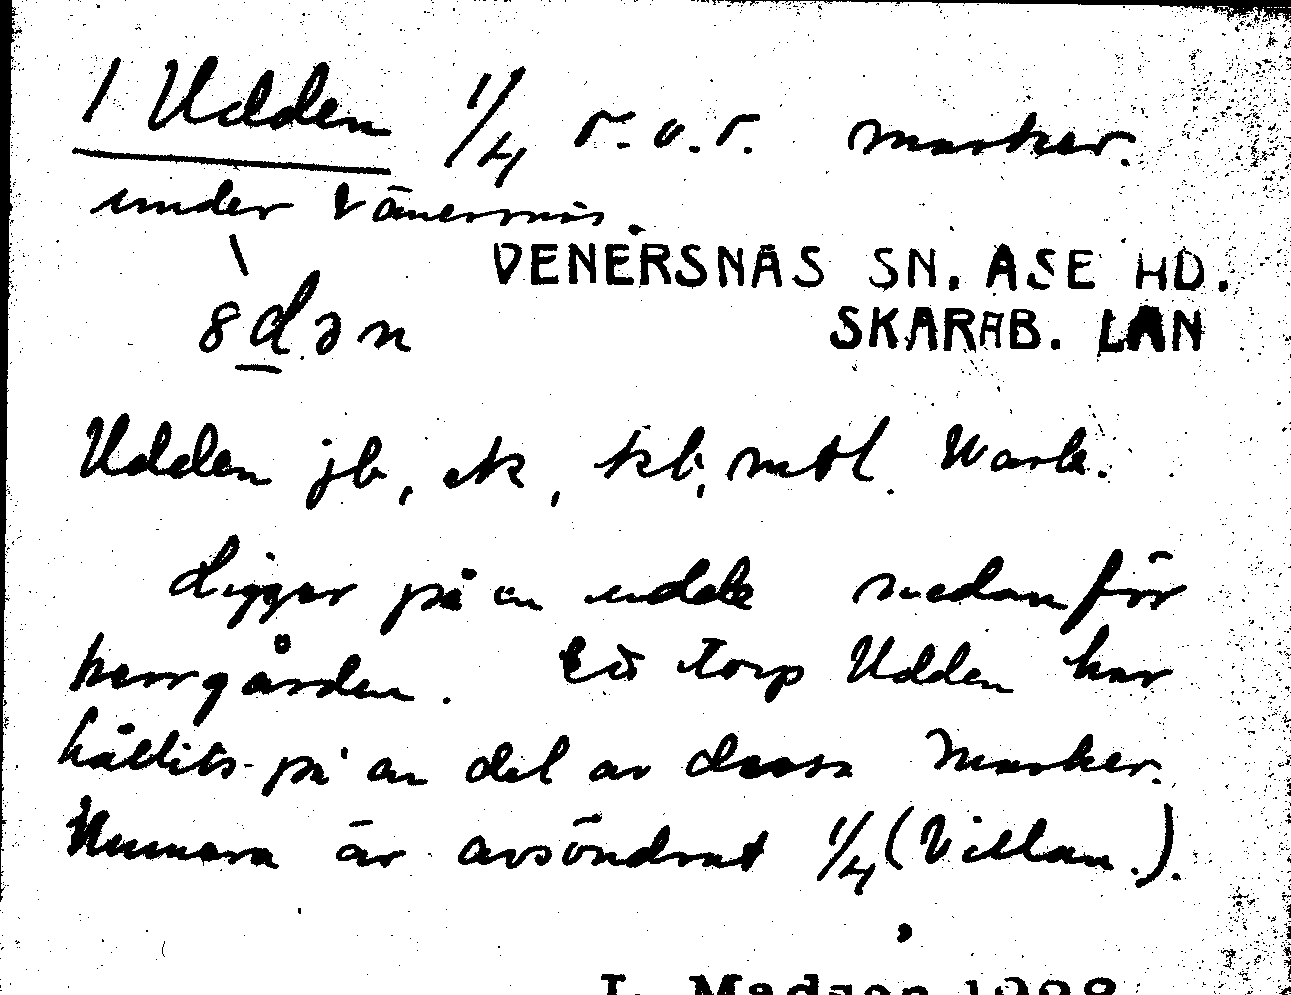 1 Udden 1/4 r.o.r. marker.
under Vänersnäs.
VENERSNÄS SN. ÅSE HD.
\
8dən
SKARAB. LÄN
Udden jb, ek, kb, mtl. Wark.
Ligger på en udde nedanför
herrgården. Ett torp Udden har
hållits på en del av dessa marker.
Numera är avsöndrat 1/4 (Villan.).